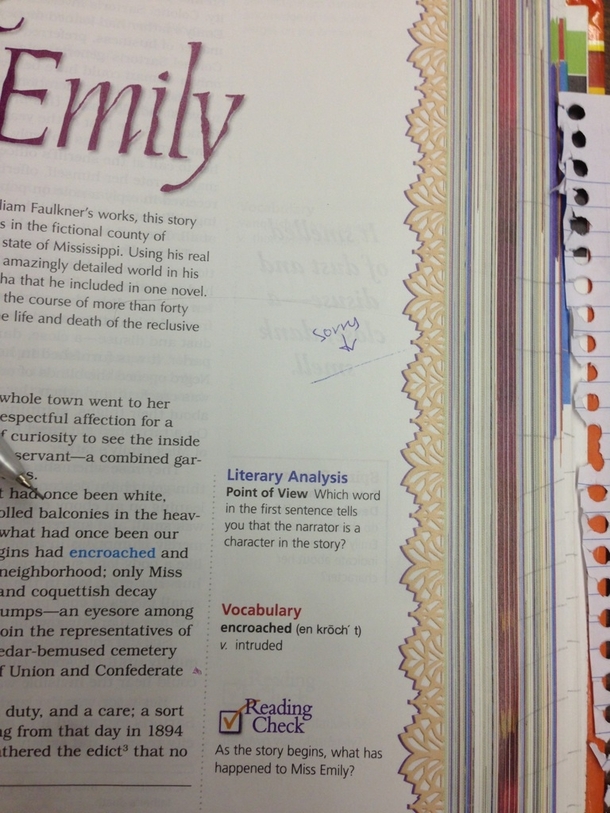 Emily
liam Faulkner's works, this story
s in the fictional county of
state of Mississippi. Using his real
amazingly detailed world in his
ha that he included in one novel.
the course of more than forty
e life and death of the reclusive
sorry
whole town went to her
espectful affection for a
f curiosity to see the inside
servant—a combined gar-
s.
t had once been white,
olled balconies in the heav-
what had once been our
gins had encroached and
neighborhood; only Miss
and coquettish decay
umps—an eyesore among
oin the representatives of
edar-bemused cemetery
f Union and Confederate
duty, and a care; a sort
ng from that day in 1894
athered the edict³ that no
Literary Analysis
Point of View Which word
in the first sentence tells
you that the narrator is a
character in the story?
Vocabulary
encroached (en krōch´ t)
v. intruded
Reading
Check
As the story begins, what has
happened to Miss Emily?